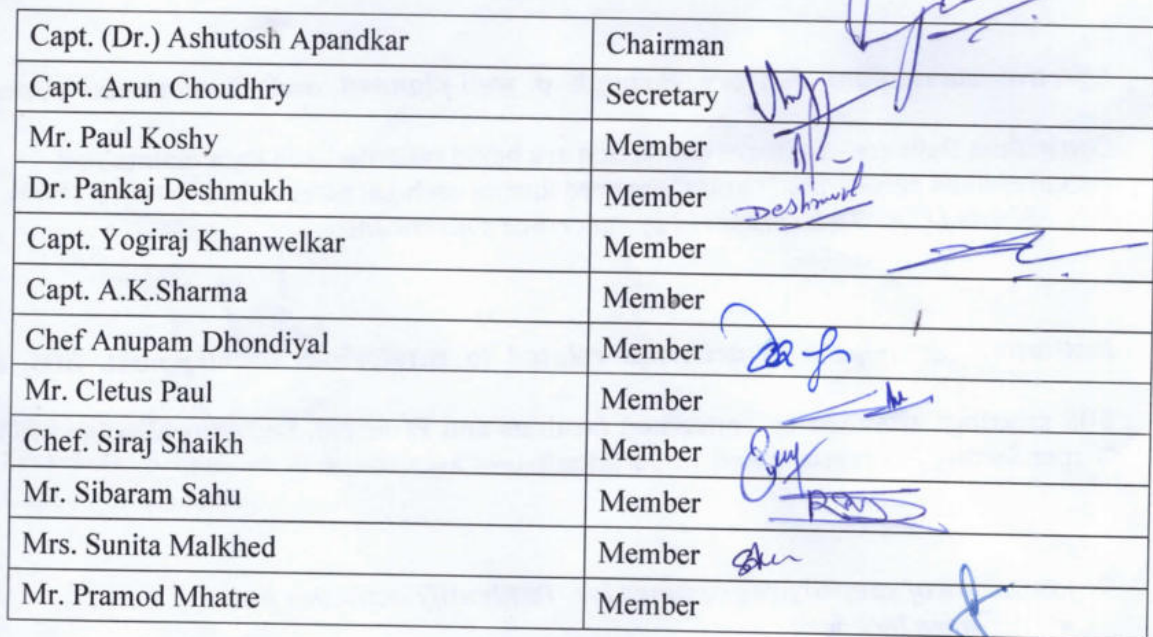 Capt. (Dr.) Ashutosh Apandkar Chairman
Capt. Arun Choudhry Secretary
Mr. Paul Koshy Member
Dr. Pankaj Deshmukh Member Deshmukh
Capt. Yogiraj Khanwelkar Member
Capt. A.K.Sharma Member
Chef Anupam Dhondiyal Member
Mr. Cletus Paul Member
Chef. Siraj Shaikh Member
Mr. Sibaram Sahu Member
Mrs. Sunita Malkhed Member
Mr. Pramod Mhatre Member